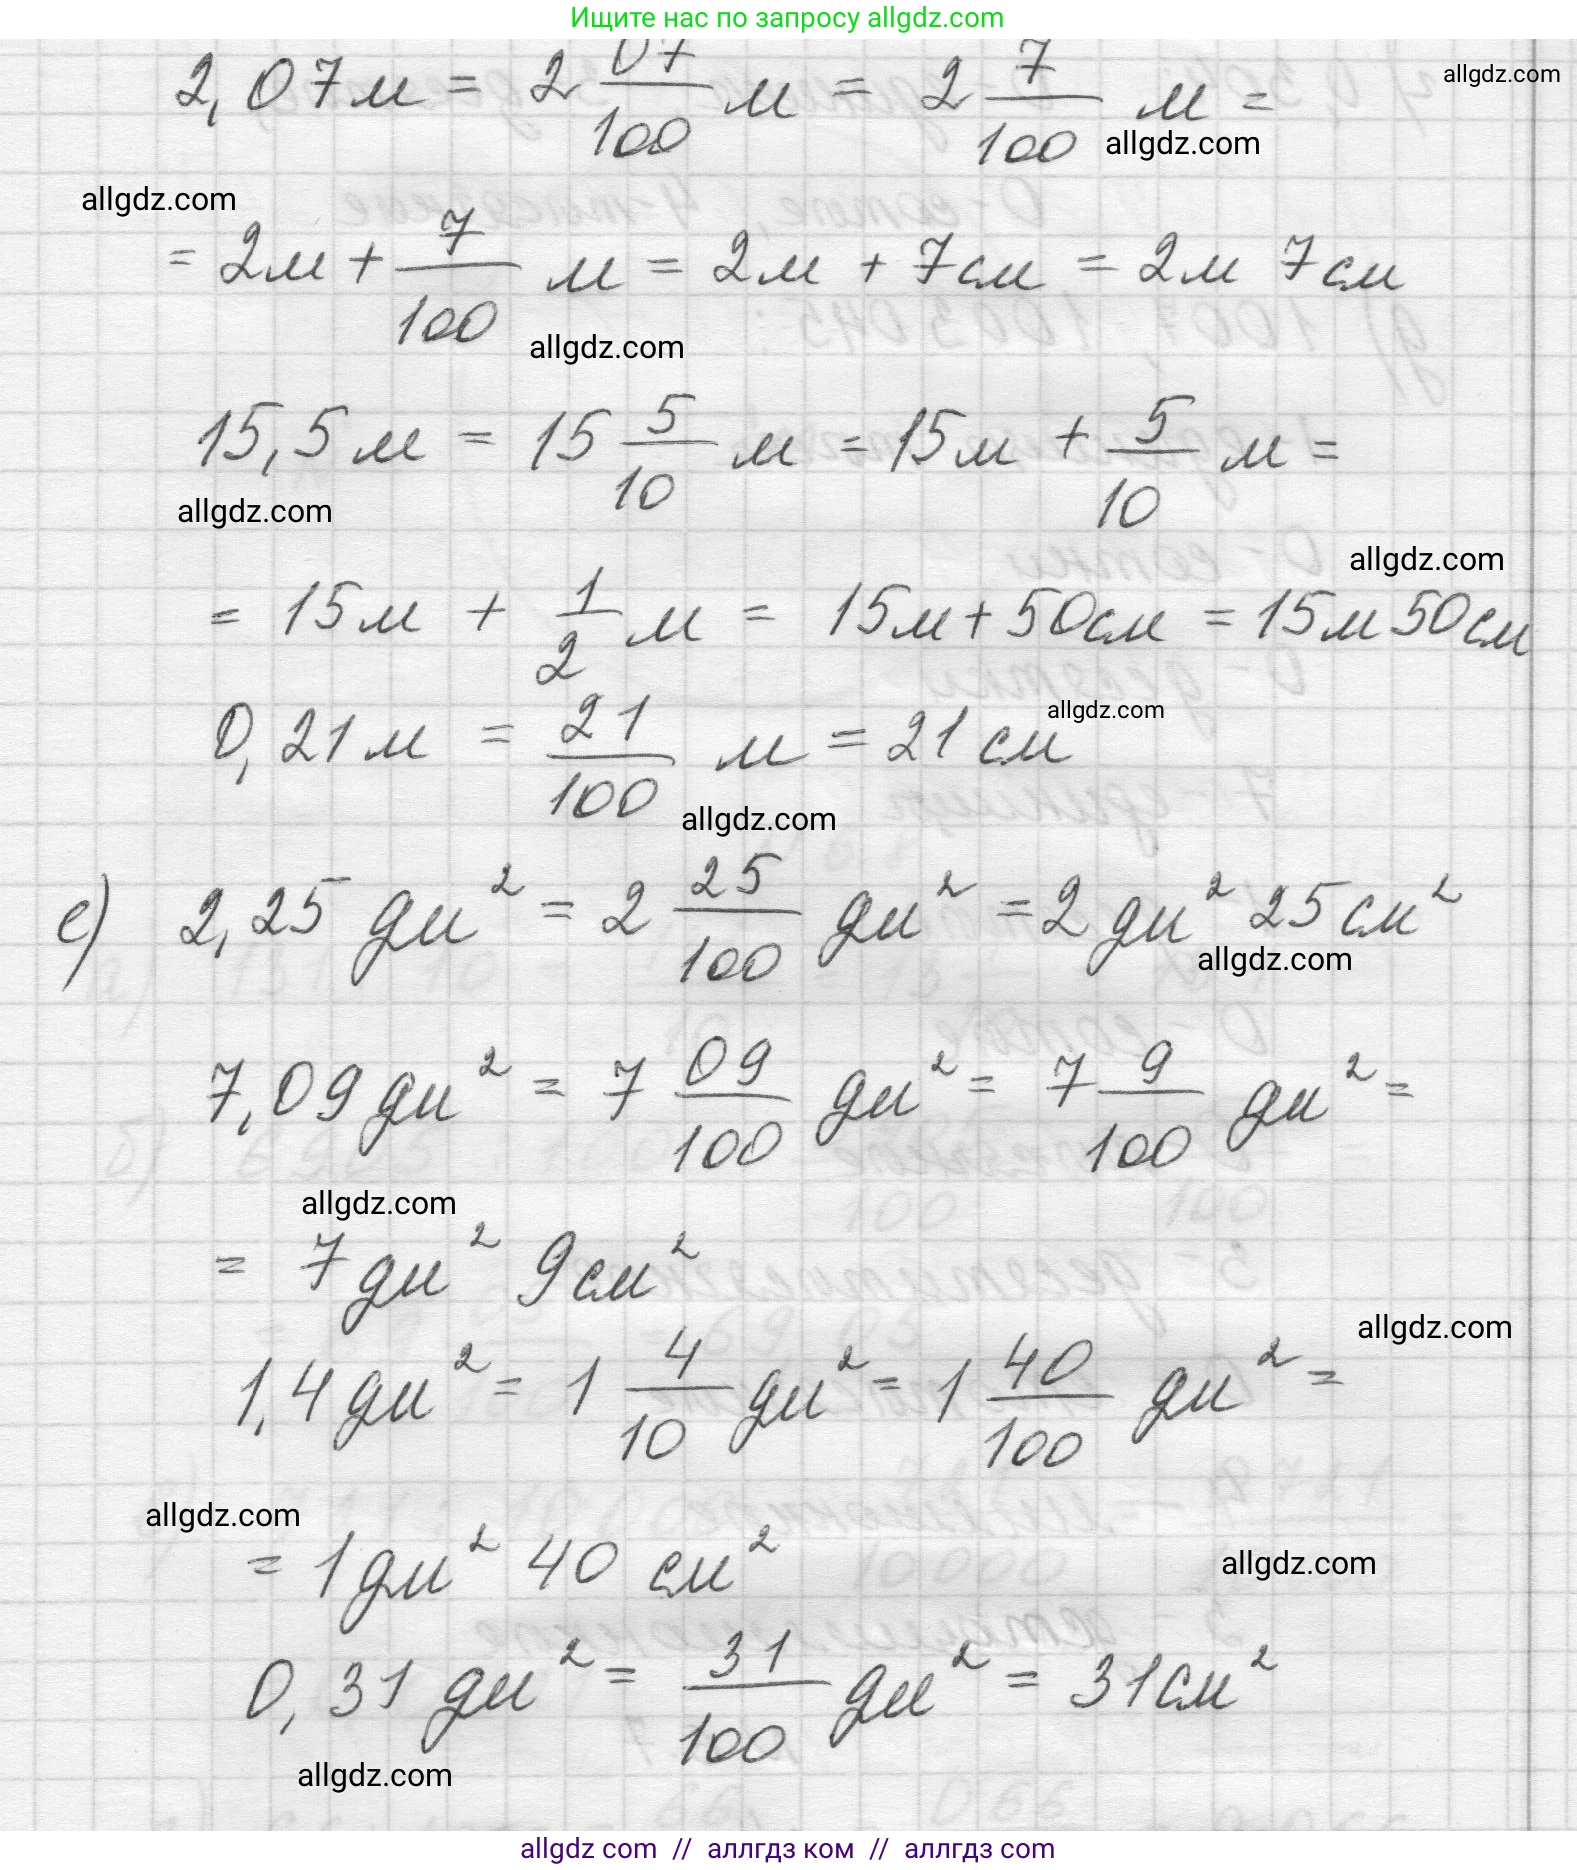 Ищите нас по запросу allgdz.com
2,07м = 2 07/100 м = 2 7/100 м =
allgdz.com
allgdz.com
allgdz.com
= 2м + 7/100 м = 2м + 7см = 2м 7см
allgdz.com
15,5м = 15 5/10 м = 15м + 5/10 м =
allgdz.com
allgdz.com
= 15м + 1/2 м = 15м + 50см = 15м 50см
0,21м = 21/100 м = 21 см
allgdz.com
allgdz.com
е) 2,25 дм² = 2 25/100 дм² = 2 дм² 25 см²
allgdz.com
7,09 дм² = 7 09/100 дм² = 7 9/100 дм² =
allgdz.com
= 7 дм² 9 см²
allgdz.com
1,4 дм² = 1 4/10 дм² = 1 40/100 дм² =
allgdz.com
= 1 дм² 40 см²
allgdz.com
0,31 дм² = 31/100 дм² = 31 см²
allgdz.com
allgdz com // аллгдз ком // аллгдз com